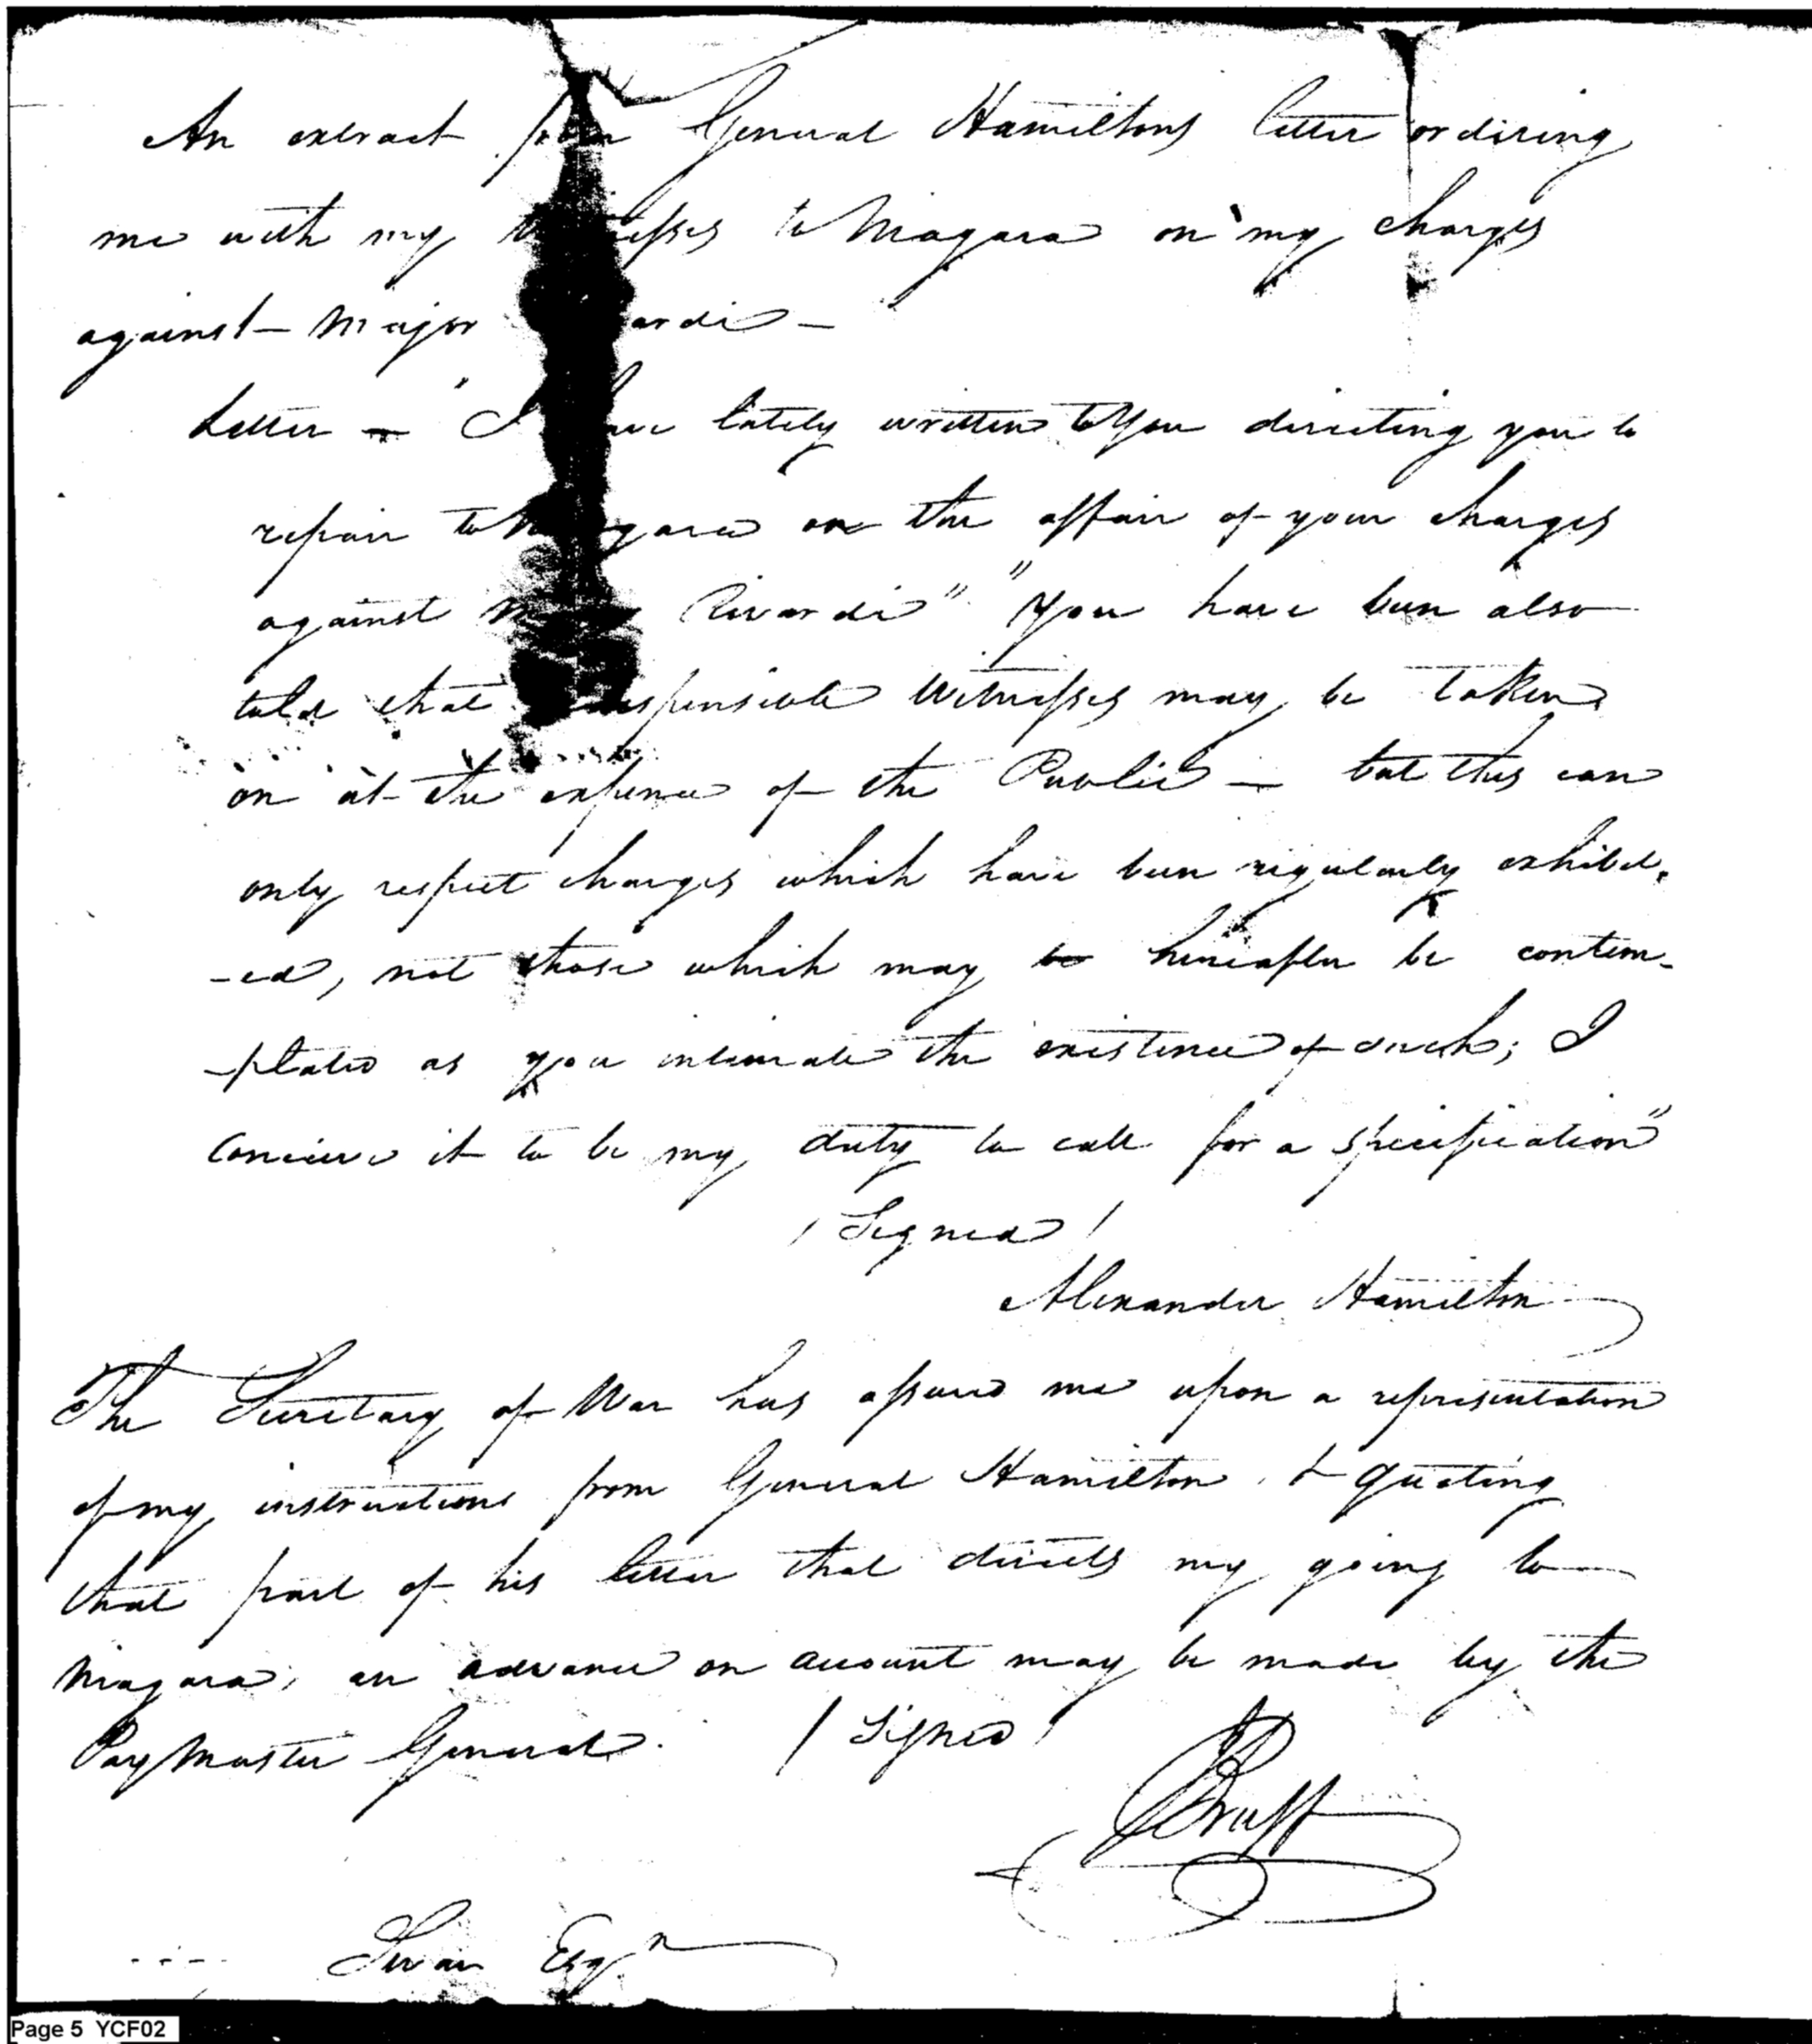 An extract from General Hamiltons letter ordiring
me with my to Niagara on my charges
against - Major -
Letter - "I have lately written to You directing you to
repair to on the affair of your charges
against Rivardi" "You have been also
told that Witnesses may be taken
on at the expence of the Public - but this can
only respect charges which have been regularly exhibit-
-ed, not those which may be hereafter be contem-
-plated as you intimate the existence of such; I
conceive it to be my duty to call for a specification"
/ Signed /
Alexander Hamilton
The Secretary of War has assured me upon a representation
of my instructions from General Hamilton, & quoting
that part of his letter that directs my going to
Niagara, an advance on account may be made by the
PayMaster General. / Signed /
Bruff
Swan Esqr
Page 5 YCF02